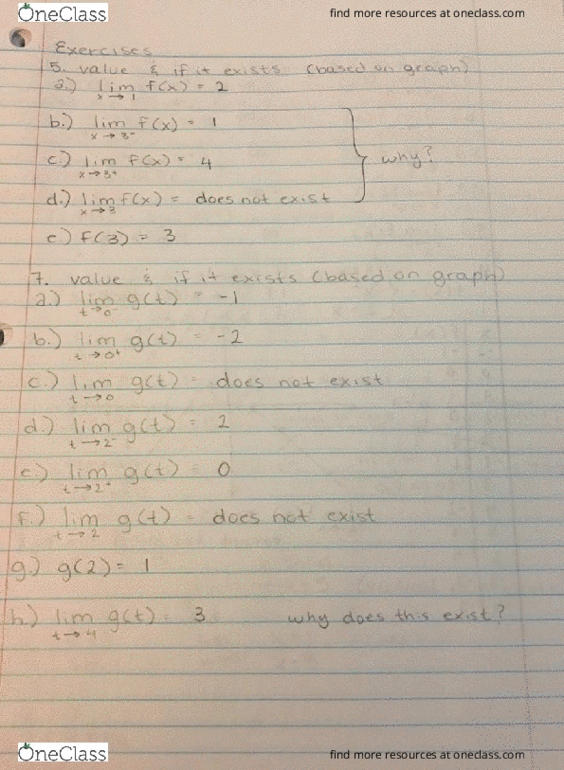 OneClass
find more resources at oneclass.com
Exercises
5. value & if it exists (based on graph)
a.) lim x→1 f(x) = 2
b.) lim x→3⁻ f(x) = 1
c.) lim x→3⁺ f(x) = 4
why?
d.) lim x→3 f(x) = does not exist
e.) f(3) = 3
7. value & if it exists (based on graph)
a.) lim t→0⁻ g(t) = -1
b.) lim t→0⁺ g(t) = -2
c.) lim t→0 g(t) = does not exist
d.) lim t→2⁻ g(t) = 2
e.) lim t→2⁺ g(t) = 0
f.) lim t→2 g(t) = does not exist
g.) g(2) = 1
h.) lim t→4 g(t) = 3 why does this exist?
OneClass
find more resources at oneclass.com